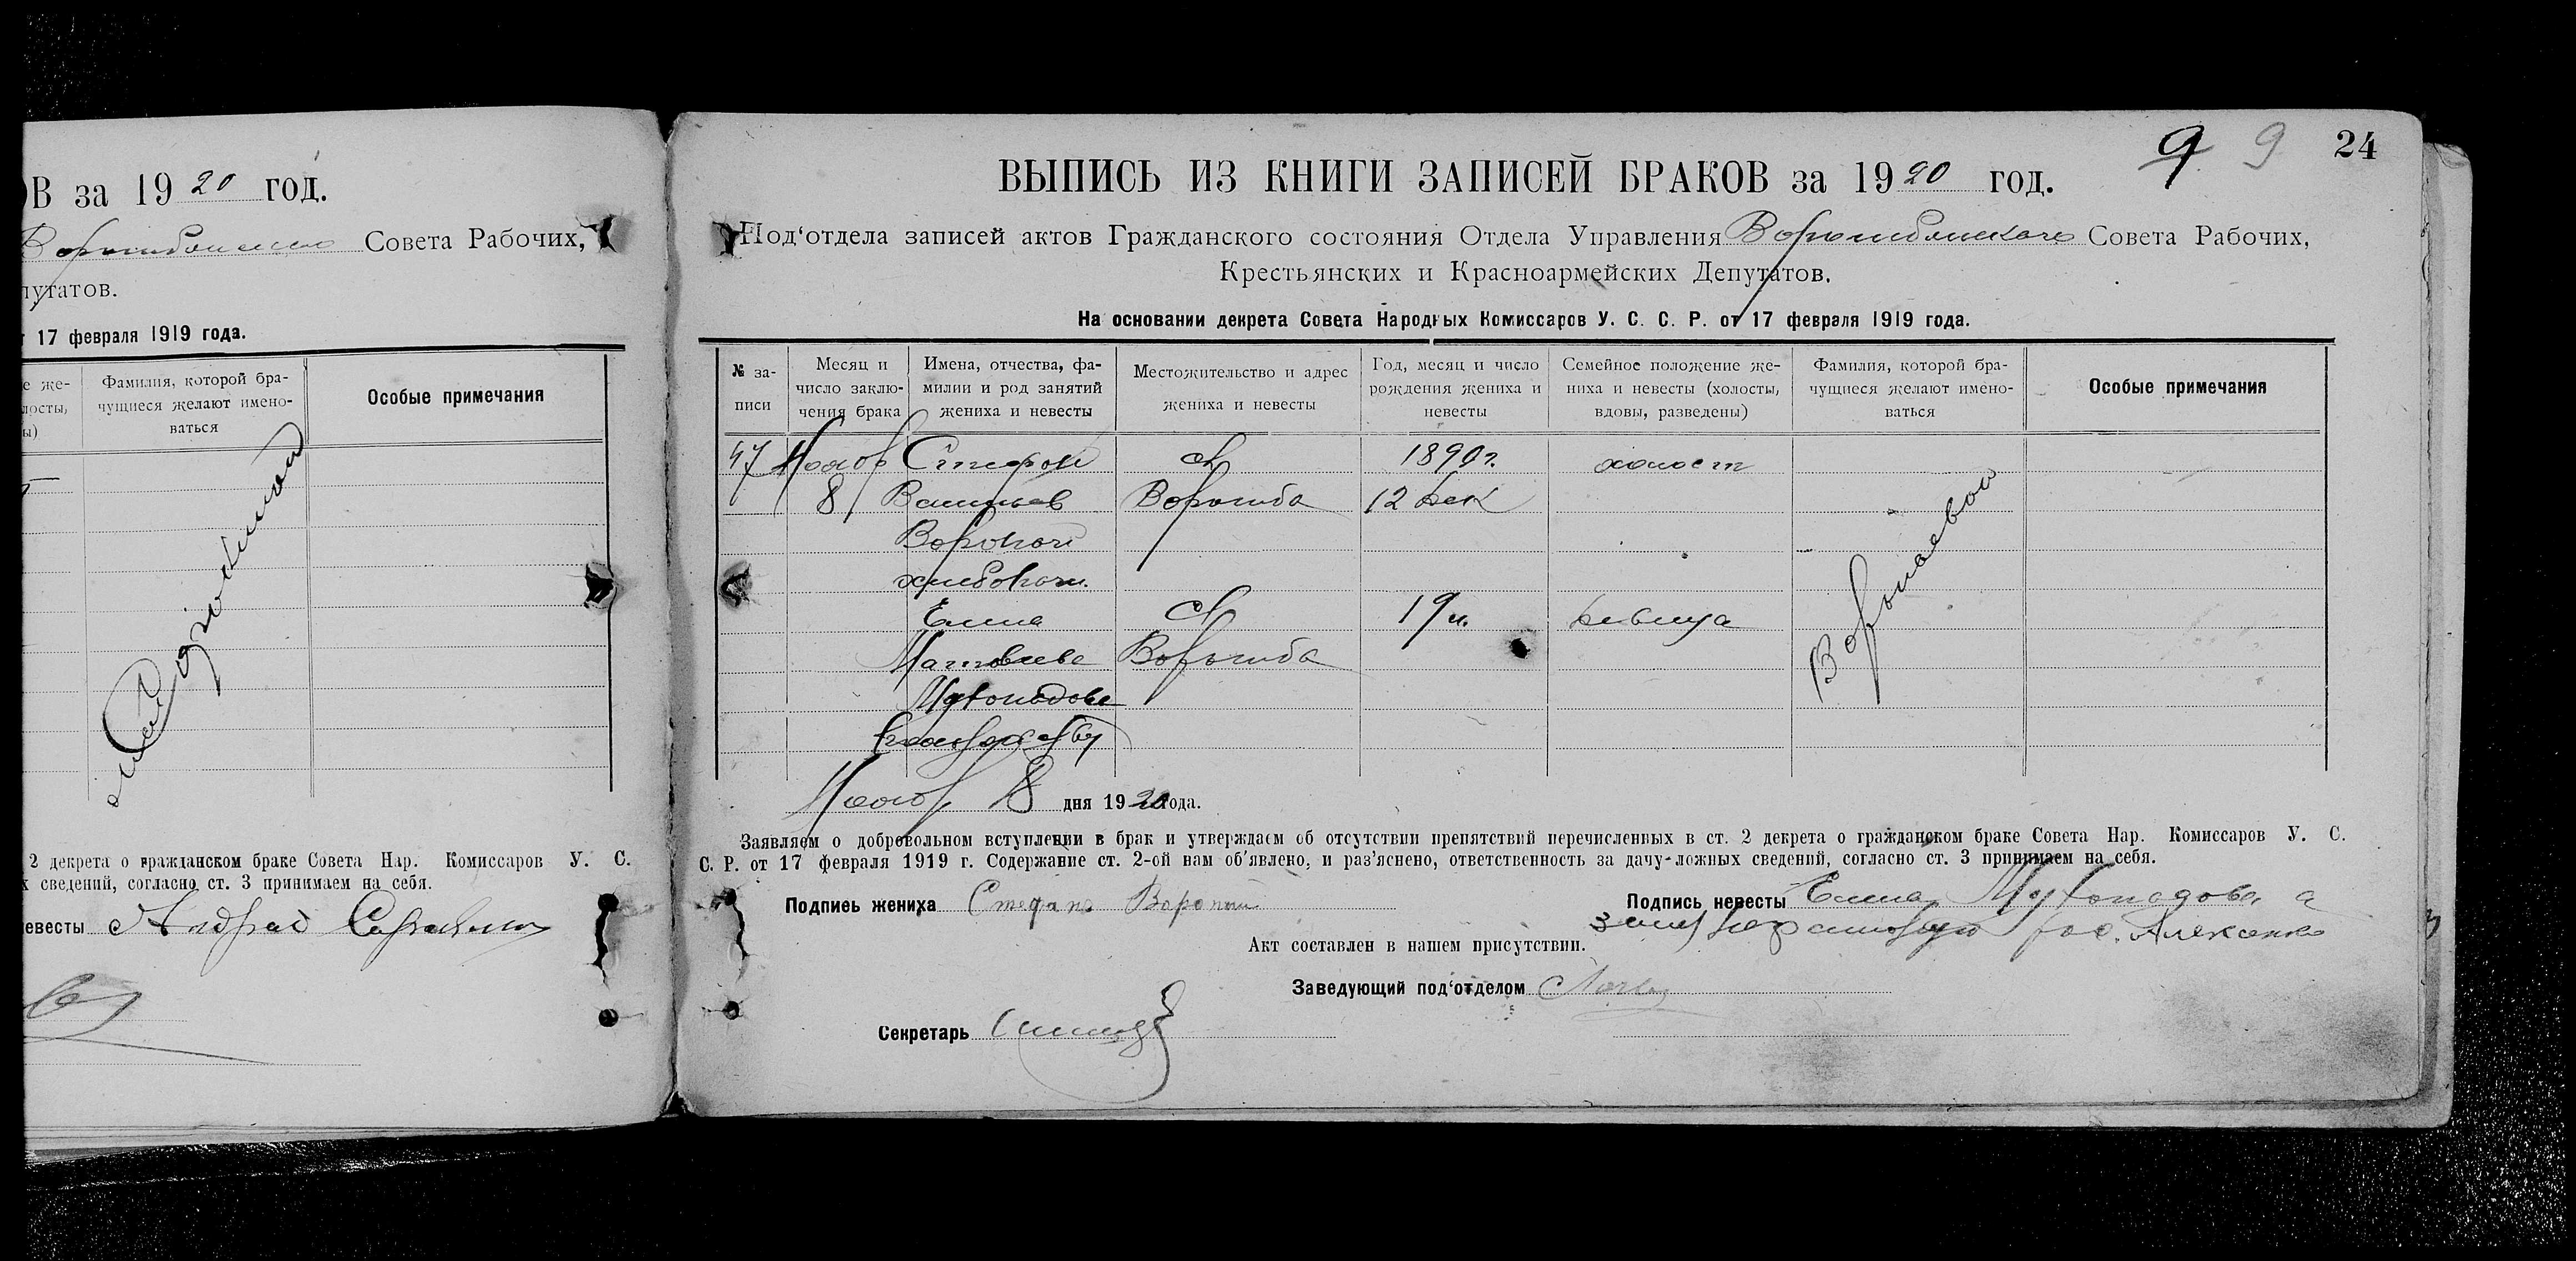 ОВ за 1920 год.
Совета Рабочих,
путатов.
17 февраля 1919 года.
е же-
лосты,
ы)
Фамилия, которой бра-
чущиеся желают имено-
ваться
Особые примечания
2 декрета о гражданском браке Совета Нар. Комиссаров У. С.
х сведений, согласно ст. 3 принимаем на себя.
евесты Андрей
9 9 24
ВЫПИСЬ ИЗ КНИГИ ЗАПИСЕЙ БРАКОВ за 1920 год.
Под‘отдела записей актов Гражданского состояния Отдела Управления Ворожбянского Совета Рабочих,
Крестьянских и Красноармейских Депутатов.
На основании декрета Совета Народных Комиссаров У. С. С. Р. от 17 февраля 1919 года.
№ за-
писи
Месяц и
число заклю-
чения брака
Имена, отчества, фа-
милии и род занятий
жениха и невесты
Местожительство и адрес
жениха и невесты
Год, месяц и число
рождения жениха и
невесты
Семейное положение же-
ниха и невесты (холосты,
вдовы, разведены)
Фамилия, которой бра-
чущиеся желают имено-
ваться
Особые примечания
47 Ноября Стефан сл 1890 г. холост
8 Васильев Ворожба 12 дек
Воропай
хлебопаш.
Елена сл 19 л. девица
Матвеева Ворожба
Воропаевой
Ноября 8 дня 1920 года.
Заявляем о добровольном вступлении в брак и утверждаем об отсутствии препятствий перечисленных в ст. 2 декрета о гражданском браке Совета Нар. Комиссаров У. С.
С. Р. от 17 февраля 1919 г. Содержание ст. 2-ой нам об‘явлено, и раз‘яснено, ответственность за дачу-ложных сведений, согласно ст. 3 принимаем на себя.
Подпись жениха Стефанъ Воропай
Подпись невесты Елена а
Акт составлен в нашем присутствии.
Заведующий под‘отделом
Секретарь